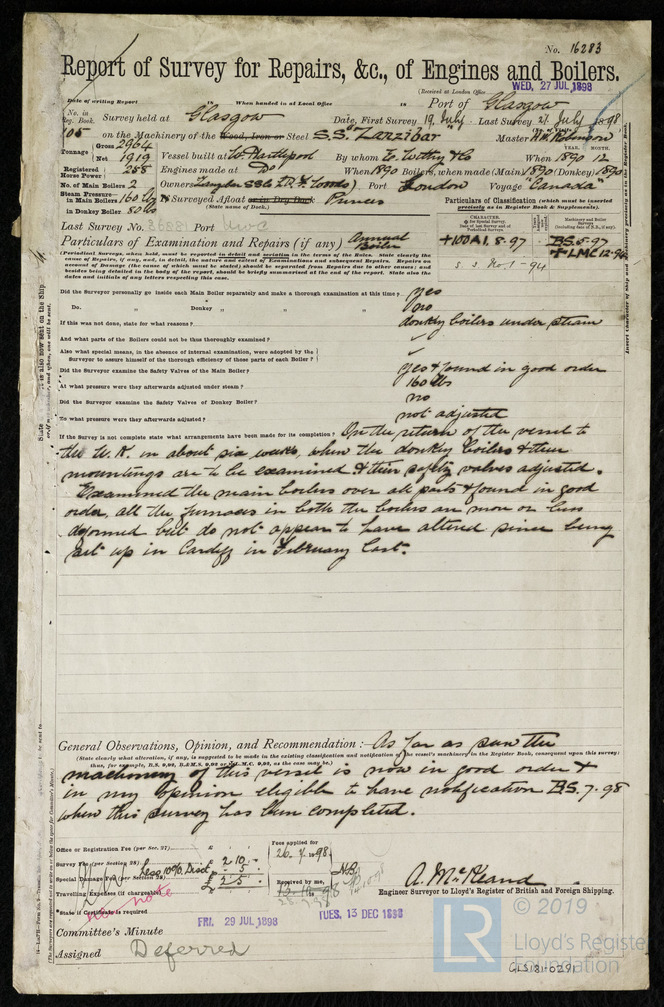 No. 16283
Report of Survey for Repairs, &c., of Engines and Boilers.
(Received at London Office WED, 27 JUL 1898
Date of writing Report When handed in at Local Office 18 Port of Glasgow
No. in Reg. Book. Survey held at Glasgow Date, First Survey 19 July Last Survey 21 July 1898
105 on the Machinery of the Wood, Iron or Steel S.S. "Zanzibar" Master Wm Robinson
Tonnage Gross 2964 Net 1919 Vessel built at W. Hartlepool By whom E. Withy & Co When 1890 12
YEAR. MONTH.
Registered Horse Power 258 Engines made at Do When 1890 Boilers, when made (Main) 1890 (Donkey) 1890
No. of Main Boilers 2 Owners Port London Voyage "Canada"
Steam Pressure in Main Boilers 160 lbs in Donkey Boiler 80 lbs If Surveyed Afloat or in Dry Dock Princes
(State name of Dock.)
Particulars of Classification (which must be inserted precisely as in Register Book & Supplements).
Last Survey No. Port
Particulars of Examination and Repairs (if any) Annual Boiler
CHARACTER. Machinery and Boiler Surveys
+100A1. 8.97 BS. 5.97
+LMC 12.94
s.s. No. 1 - 94
(Periodical Surveys, when held, must be reported in detail and seriatim in the terms of the Rules. State clearly the
Did the Surveyor personally go inside each Main Boiler separately and make a thorough examination at this time? yes
Do. " Donkey " " " no
If this was not done, state for what reasons? donkey boilers under steam
And what parts of the Boilers could not be thus thoroughly examined?
Also what special means, in the absence of internal examination, were adopted by the
Surveyor to assure himself of the thorough efficiency of those parts of each Boiler?
Did the Surveyor examine the Safety Valves of the Main Boiler? yes & found in good order
At what pressure were they afterwards adjusted under steam? 160 lbs
Did the Surveyor examine the Safety Valves of Donkey Boiler? no
To what pressure were they afterwards adjusted? not adjusted
If the Survey is not complete state what arrangements have been made for its completion? On the return of the vessel to
the U.K. in about six weeks, when the donkey boilers & their
mountings are to be examined & their safety valves adjusted.
Examined the main boilers over all parts & found in good
order, all the furnaces in both the boilers are more or less
deformed but do not appear to have altered since being
set up in Cardiff in February last.
General Observations, Opinion, and Recommendation :— As far as seen the
(State clearly what alteration, if any, is suggested to be made in the existing classification and notification of the vessel's machinery in the Register Book, consequent upon this survey:
machinery of this vessel is now in good order &
in my opinion eligible to have notification B.S. 7.98
when this survey has been completed.
Office or Registration Fee (per Sec. 27)... £ Fees applied for
Survey Fee (per Section 28) £ 2 10 . - 26. 7. 1898
Less 10% Disct. 5 . -
Special Damage Fee (per Section 28) £ 2 5 . - Received by me,
Travelling Expenses (if chargeable)
State if Certificate is required
A. McKeand
Engineer Surveyor to Lloyd's Register of British and Foreign Shipping.
Committee's Minute FRI. 29 JUL 1898 TUES. 13 DEC 1898
Assigned Deferred
© 2019
LR Lloyd's Register Foundation
GLS181-0291